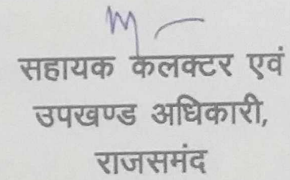 सहायक कलक्टर एवं
उपखण्ड अधिकारी,
राजसमंद